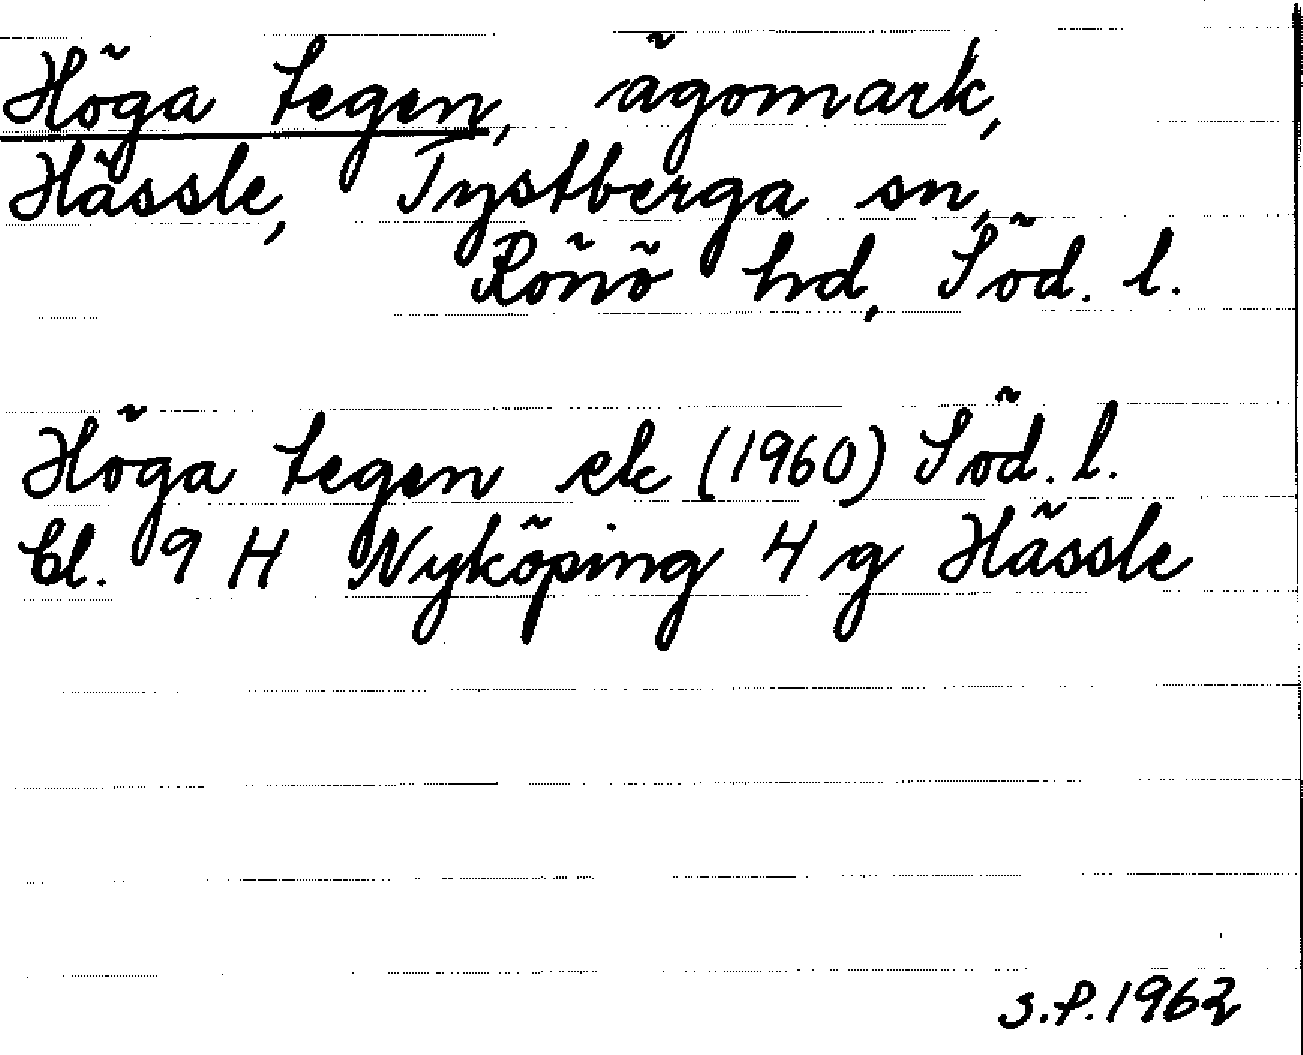 Höga tegen, ägomark,
Hässle, Tystberga sn,
Rönö hd, Söd. l.
Höga tegen ek (1960) Söd. l.
bl. 9 H Nyköping 4 g Hässle
S.P. 1962